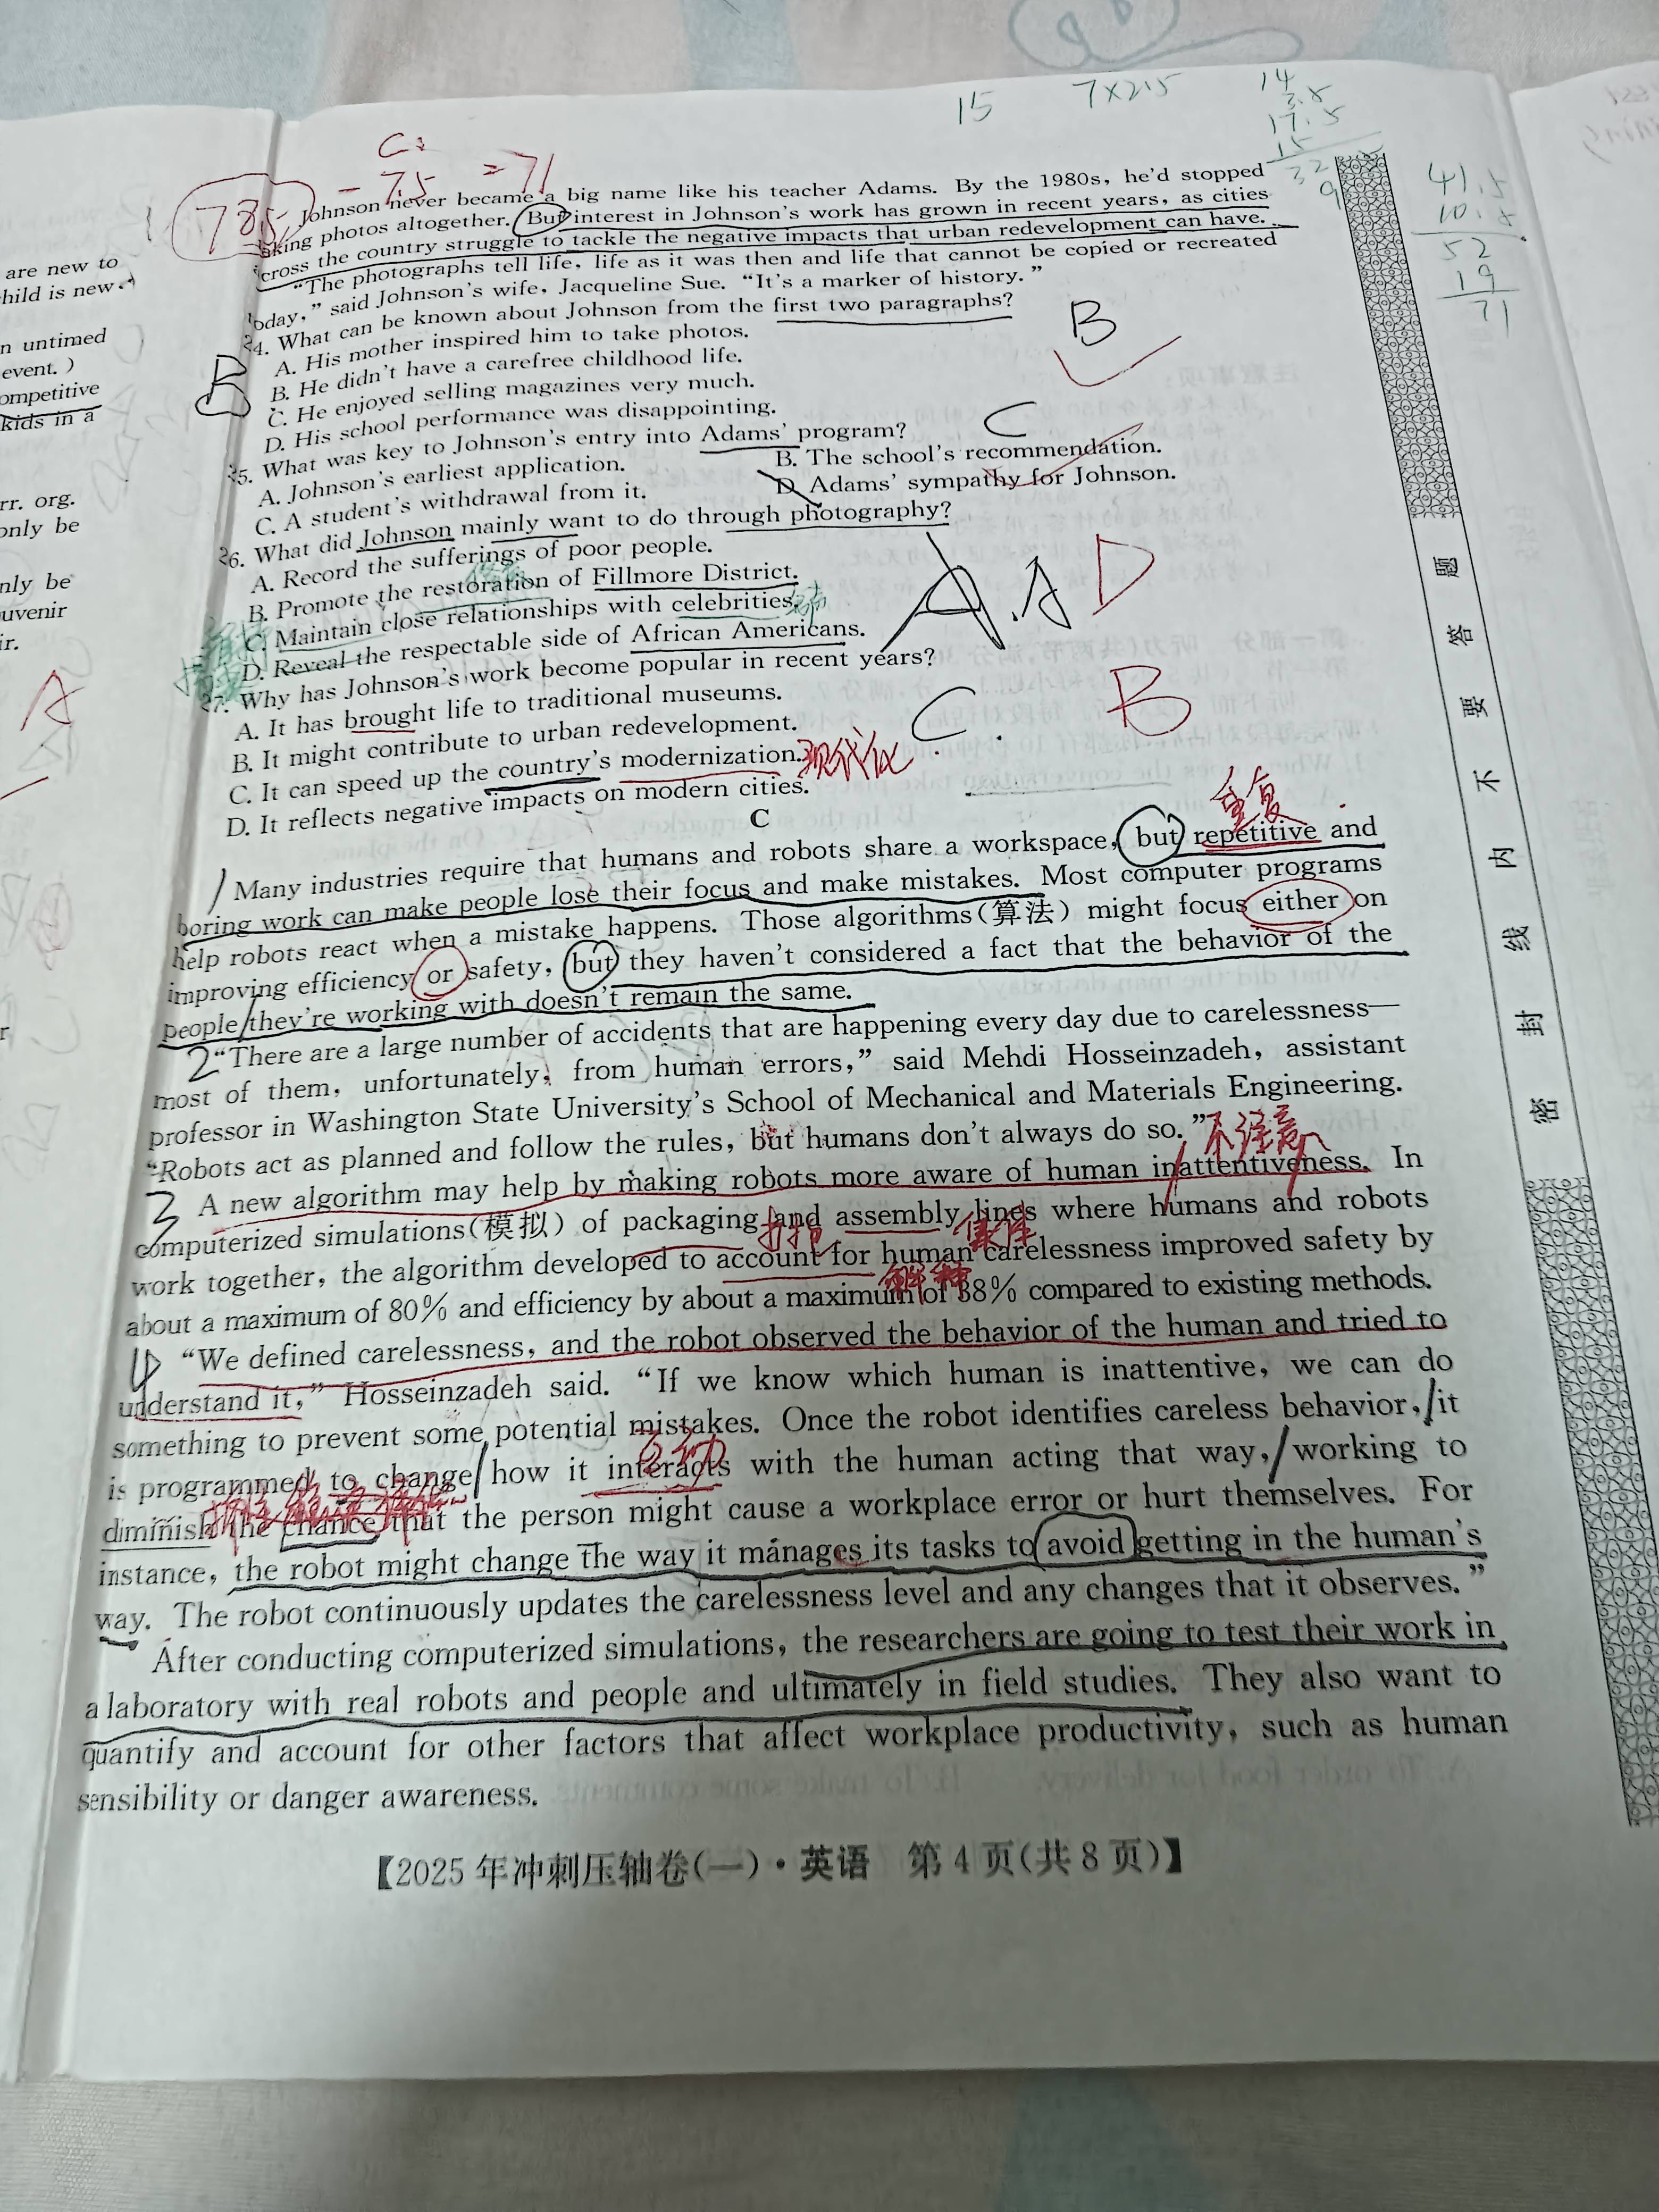 15
7×2.5
14
3.5
17.5
15
32
9
41.5
10.5
52
19
71
C:
78.5 - 7.5 = 71
Johnson never became a big name like his teacher Adams. By the 1980s, he'd stopped
king photos altogether. But interest in Johnson's work has grown in recent years, as cities
cross the country struggle to tackle the negative impacts that urban redevelopment can have.
"The photographs tell life, life as it was then and life that cannot be copied or recreated
today," said Johnson's wife, Jacqueline Sue. "It's a marker of history."
24. What can be known about Johnson from the first two paragraphs?
A. His mother inspired him to take photos.
B. He didn't have a carefree childhood life.
C. He enjoyed selling magazines very much.
D. His school performance was disappointing.
B
B
25. What was key to Johnson's entry into Adams' program?
A. Johnson's earliest application.
B. The school's recommendation.
C. A student's withdrawal from it.
D. Adams' sympathy for Johnson.
C
26. What did Johnson mainly want to do through photography?
A. Record the sufferings of poor people.
B. Promote the restoration of Fillmore District.
C. Maintain close relationships with celebrities.
D. Reveal the respectable side of African Americans.
A. A D
27. Why has Johnson's work become popular in recent years?
A. It has brought life to traditional museums.
B. It might contribute to urban redevelopment.
C. It can speed up the country's modernization. 现代化
D. It reflects negative impacts on modern cities.
C. B
C
重复
1 Many industries require that humans and robots share a workspace, but repetitive and
boring work can make people lose their focus and make mistakes. Most computer programs
help robots react when a mistake happens. Those algorithms(算法) might focus either on
improving efficiency or safety, but they haven't considered a fact that the behavior of the
people they're working with doesn't remain the same.
2 "There are a large number of accidents that are happening every day due to carelessness—
most of them, unfortunately, from human errors," said Mehdi Hosseinzadeh, assistant
professor in Washington State University's School of Mechanical and Materials Engineering.
"Robots act as planned and follow the rules, but humans don't always do so." 不注意
3 A new algorithm may help by making robots more aware of human inattentiveness. In
computerized simulations(模拟) of packaging and assembly lines where humans and robots
work together, the algorithm developed to account for human carelessness improved safety by
解释
about a maximum of 80% and efficiency by about a maximum of 38% compared to existing methods.
4 "We defined carelessness, and the robot observed the behavior of the human and tried to
understand it," Hosseinzadeh said. "If we know which human is inattentive, we can do
something to prevent some potential mistakes. Once the robot identifies careless behavior, it
互动
is programmed to change how it interacts with the human acting that way, working to
diminish the chance that the person might cause a workplace error or hurt themselves. For
instance, the robot might change the way it manages its tasks to avoid getting in the human's
way. The robot continuously updates the carelessness level and any changes that it observes."
After conducting computerized simulations, the researchers are going to test their work in
a laboratory with real robots and people and ultimately in field studies. They also want to
quantify and account for other factors that affect workplace productivity, such as human
sensibility or danger awareness.
【2025年冲刺压轴卷(一)·英语 第4页(共8页)】
密 封 线 内 不 要 答 题
are new to
hild is new.
n untimed
event. )
ompetitive
kids in a
rr. org.
only be
nly be
uvenir
ir.
A